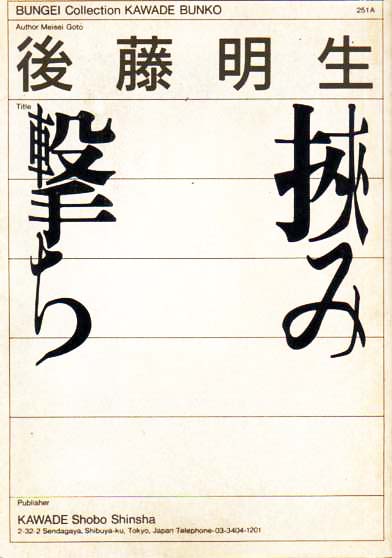 BUNGEI Collection KAWADE BUNKO
251A
Author Meisei Goto
後藤明生
Title
挾み
撃ち
Publisher
KAWADE Shobo Shinsha
2-32-2 Sendagaya, Shibuya-ku, Tokyo, Japan Telephone-03-3404-1201